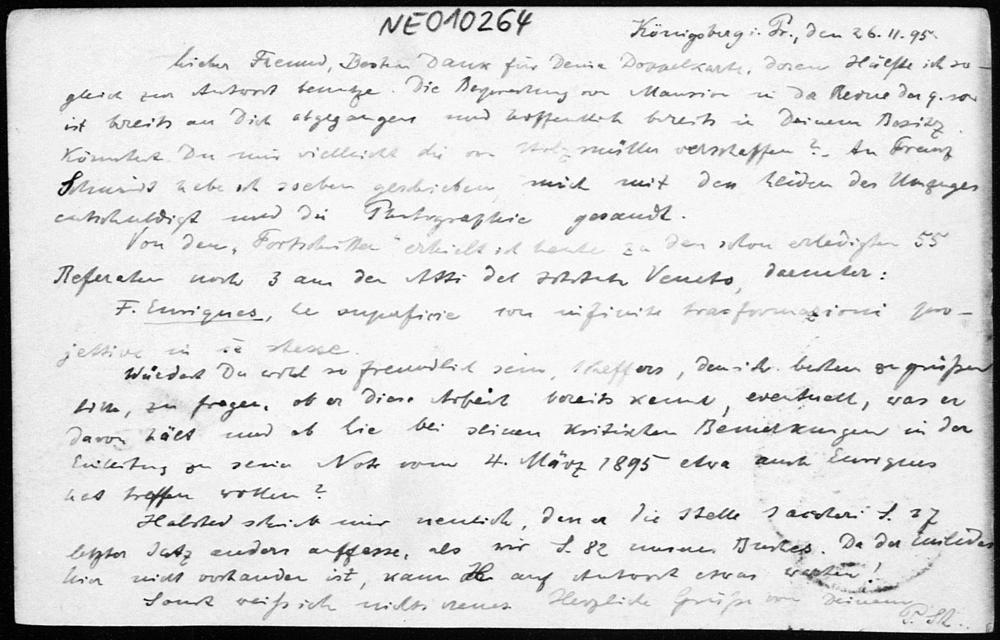 NEO10264
Königsberg i. Pr., den 26.11.95.
Lieber Freund, Besten Dank für Deine Doppelkarte, deren Hälfte ich so-
gleich zur Antwort benutze. Die Besprechung von Mansion in der Revue des q. sc.
ist bereits an Dich abgegangen und hoffentlich bereits in Deinem Besitz.
Könntest Du mir vielleicht die von Holzmüller verschaffen? - An Franz
Schmidt habe ich soeben geschrieben, mich mit den Leiden des Umzuges
entschuldigt und die Photographie gesandt.
Von den "Fortschritten" erhielt ich heute zu den schon erledigten 55
Referaten noch 3 aus den Atti del Istituto Veneto, darunter:
F. Enriques, Le superficie con infinite trasformazioni pro-
jettive in se stesse.
Würdest Du wohl so freundlich sein, Scheffers, den ich bestens zu grüßen
bitte, zu fragen, ob er diese Arbeit bereits kennt, eventuell, was er
davon hält und ob Lie bei seinen kritischen Bemerkungen in der
Einleitung zu seiner Note vom 4. März 1895 etwa auch Enriques
hat treffen wollen?
Halsted schrieb mir neulich, dass er die Stelle Saccheri S. 27
letzter Satz anders auffasse, als wir S. 82 unseres Buches. Da der Euklides
hier nicht vorhanden ist, kann H. auf Antwort etwas warten!
Sonst weiß ich nichts neues. Herzliche Grüße von Deinem
P. St.